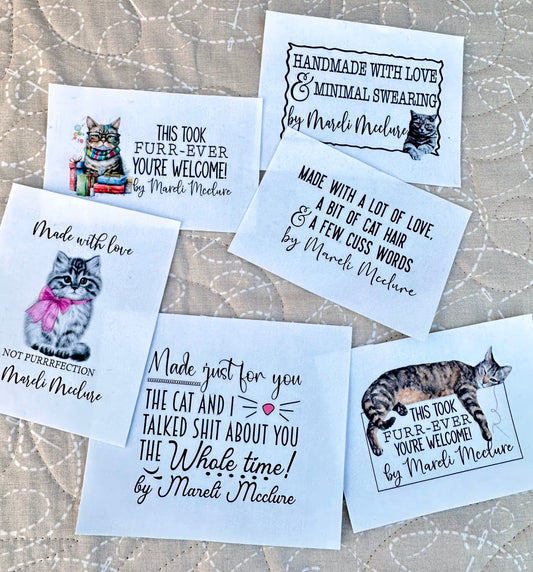 HANDMADE WITH LOVE
& MINIMAL SWEARING
by Mareli Mcclure
THIS TOOK
FURR-EVER
YOURE WELCOME!
by Mareli Mcclure
MADE WITH A LOT OF LOVE,
A BIT OF CAT HAIR
& A FEW CUSS WORDS
by Mareli Mcclure
Made with love
NOT PURRRFECTION
Mareli Mcclure
Made just for you
THE CAT AND I
TALKED SHIT ABOUT YOU
THE Whole time!
by Mareli Mcclure
THIS TOOK
FURR-EVER
YOURE WELCOME!
by Mareli Mcclure